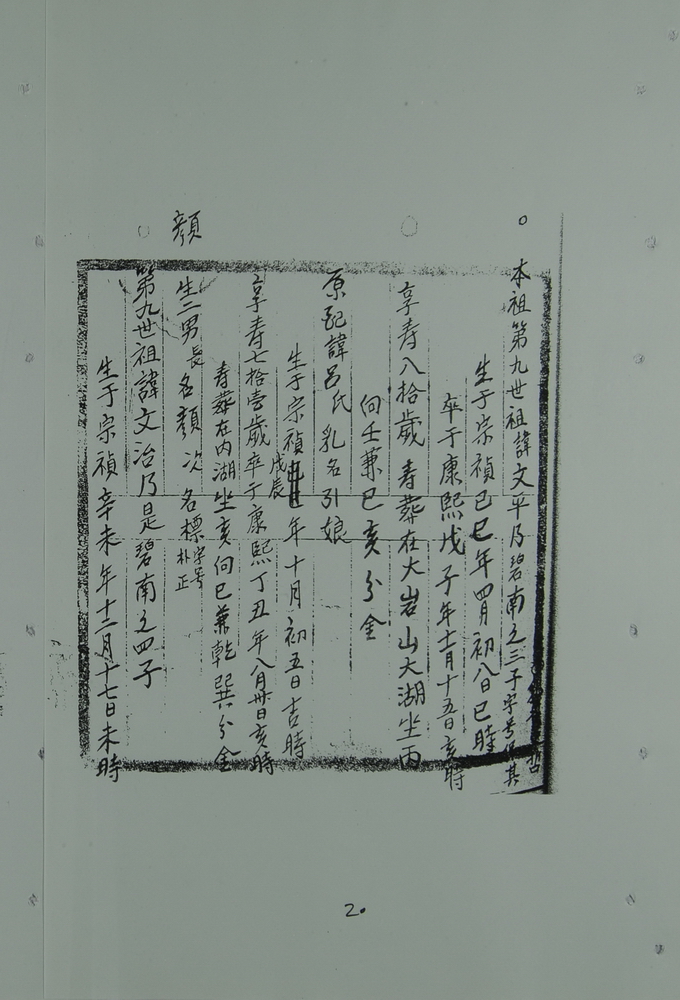 顏
本祖第九世祖諱文平乃碧南之三子字号保其
生于宗禎己巳年四月初八日巳時
卒于康熙戊子年十二月十五日亥時
享寿八拾歲 寿葬在大岩山大湖坐丙
向壬兼巳亥分金
原配諱呂氏乳名引娘
生于宗禎戊辰年十月初五日吉時
享寿七拾壹歲卒于康熙丁丑年八月卅日亥時
寿葬在内湖坐亥向巳兼乾巽分金
生二男長名顏次名標字号朴正
第九世祖諱文治乃是碧南之四子
生于宗禎辛未年十二月十七日未時
2.